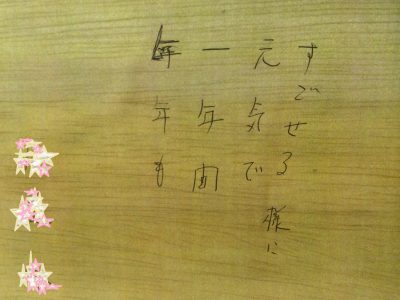 年も
一年間
元気で
すごせる様に